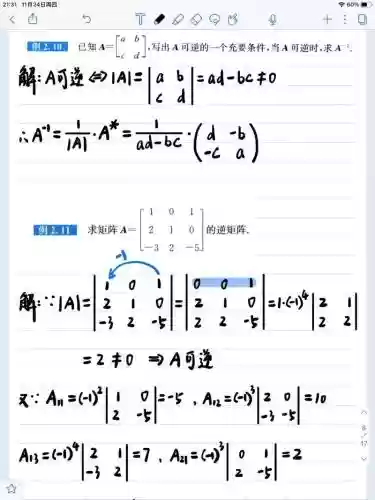 21:31 11月24日周四 60%
例 2.10 已知 A=[a b; c d],写出 A 可逆的一个充要条件,当 A 可逆时,求 A⁻¹.
解:A可逆 ⇔ |A| = |a b; c d| = ad-bc ≠ 0
∴ A⁻¹ = 1/|A| · A* = 1/(ad-bc) · (d -b; -c a)
例 2.11 求矩阵 A=[1 0 1; 2 1 0; -3 2 -5] 的逆矩阵.
-1
解:∵ |A| = |1 0 1; 2 1 0; -3 2 -5| = |0 0 1; 2 1 0; 2 2 -5| = 1·(-1)⁴ |2 1; 2 2|
= 2 ≠ 0 ⇒ A可逆
又∵ A₁₁=(-1)² |1 0; 2 -5| = -5 , A₁₂=(-1)³ |2 0; -3 -5| = 10
A₁₃=(-1)⁴ |2 1; -3 2| = 7 , A₂₁=(-1)³ |0 1; 2 -5| = 2